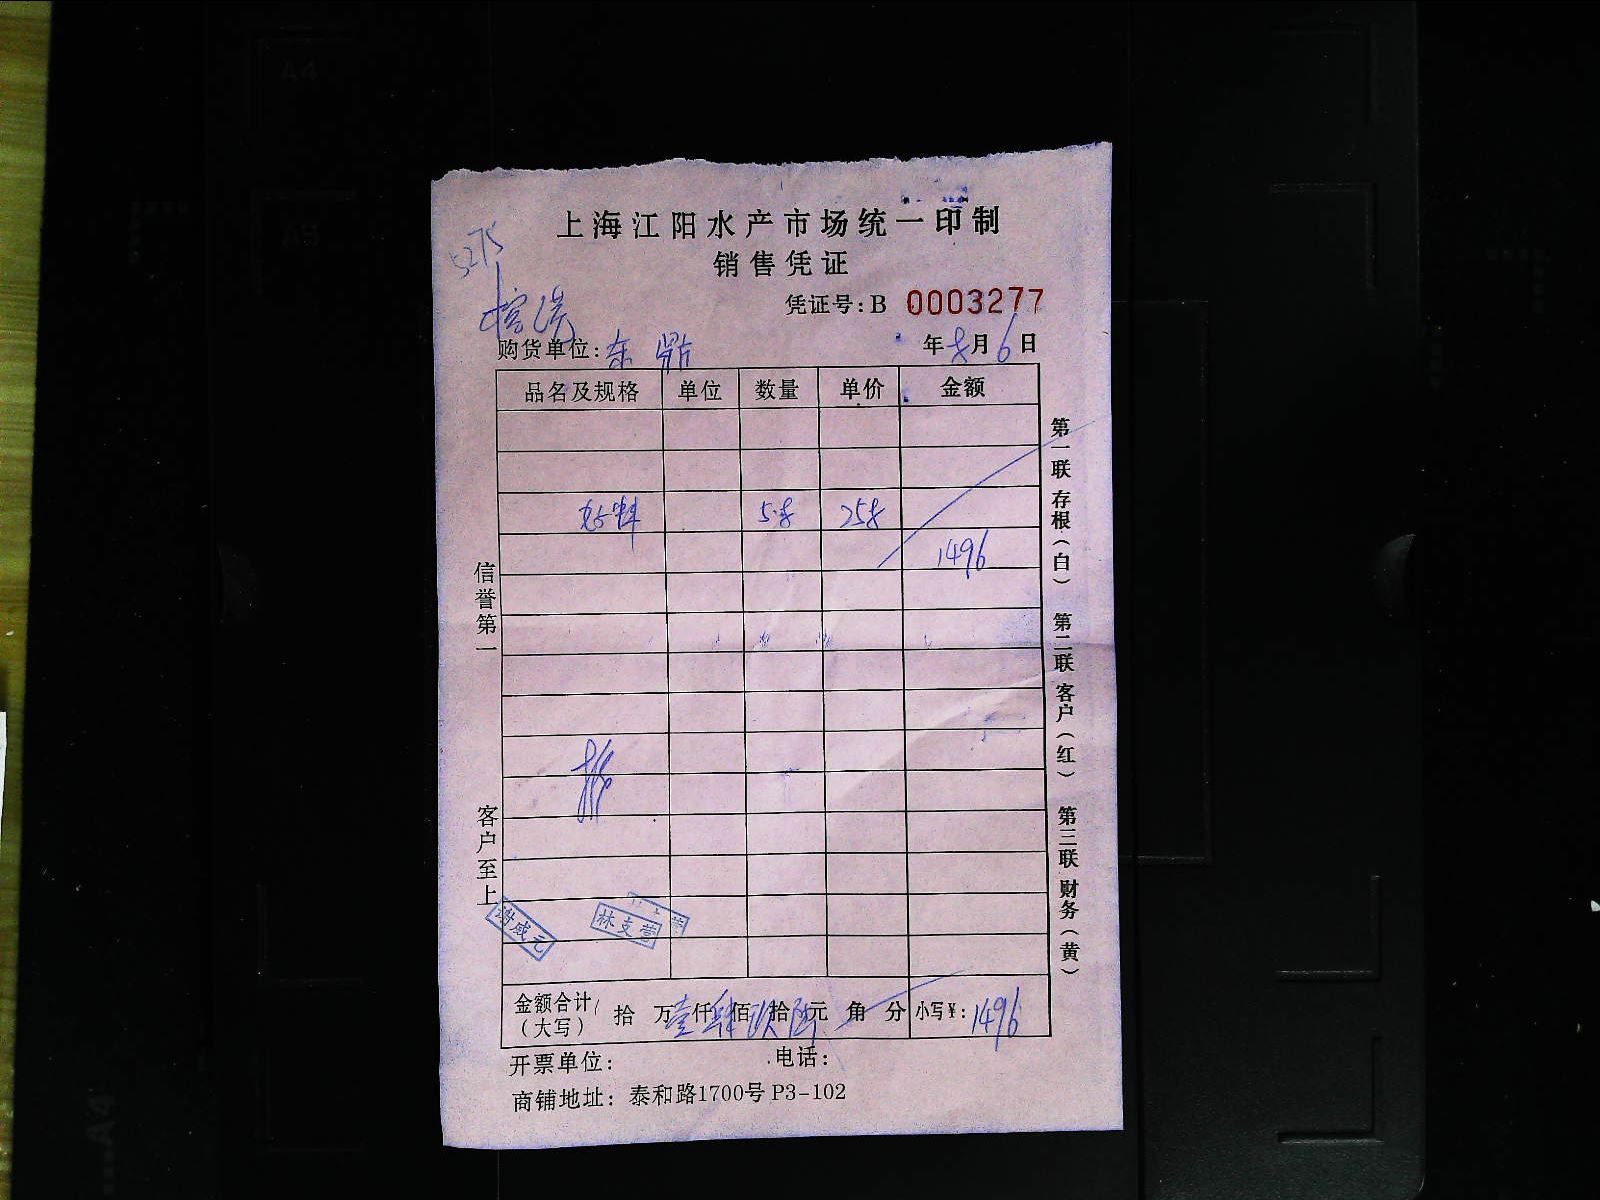 上海江阳水产市场统一印制
销售凭证
5275
凭证号:B 0003277
购货单位:东 鼎 年8月6日
品名及规格 单位 数量 单价 金额
5.8 258
1496
信誉第一
客户至上
第一联 存根(白) 第二联 客户(红) 第三联 财务(黄)
林支营
金额合计(大写) 拾 万壹仟肆佰玖拾陆元 角 分 小写¥:1496
开票单位: 电话:
商铺地址: 泰和路1700号 P3-102